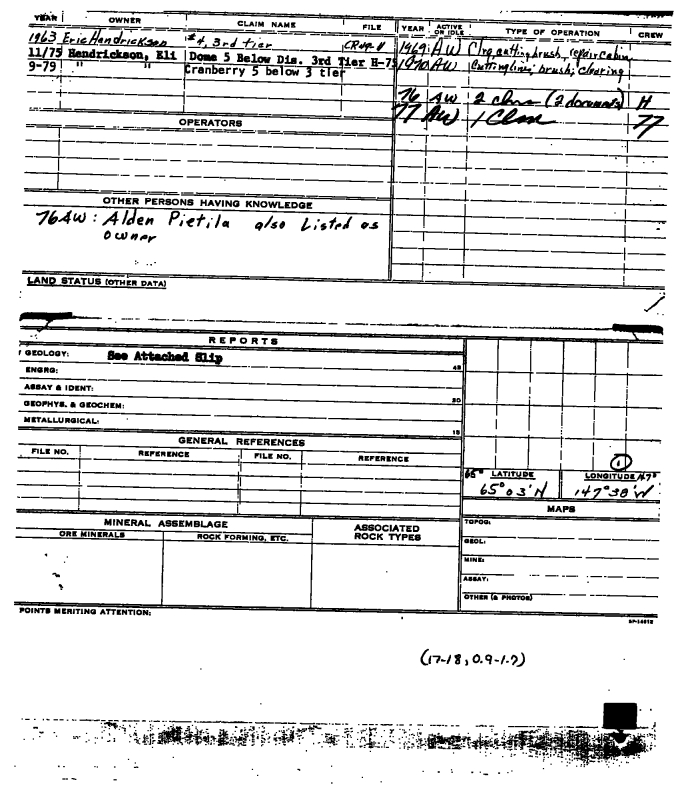 YEAR OWNER CLAIM NAME FILE YEAR ACTIVE OR IDLE TYPE OF OPERATION CREW
1963 Eric Hendrickson #4, 3rd tier 1969 AW Clng cutting brush, repair cabin
11/75 Hendrickson, Eli Dome 5 Below Dis. 3rd Tier H-75 1970 AW Cutting line; brush; clearing
9-79 " " Cranberry 5 below 3 tier
76 AW 2 clms (2 documents) H
77 AW 1 Clm 77
OPERATORS
OTHER PERSONS HAVING KNOWLEDGE
76AW: Alden Pietila also Listed as
owner
LAND STATUS (OTHER DATA)
REPORTS
GEOLOGY: See Attached Slip
ENGRG:
ASSAY & IDENT:
GEOPHYS. & GEOCHEM:
METALLURGICAL:
45
30
15
GENERAL REFERENCES
FILE NO. REFERENCE FILE NO. REFERENCE
1
65° LATITUDE LONGITUDE 147°
65°03'N 147°38'W
MINERAL ASSEMBLAGE
ORE MINERALS ROCK FORMING, ETC.
ASSOCIATED
ROCK TYPES
MAPS
TOPOG:
GEOL:
MINE:
ASSAY:
OTHER (& PHOTOS)
POINTS MERITING ATTENTION:
(17-18, 0.9-1.7)